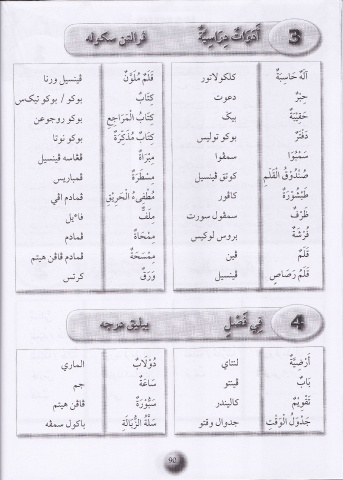 3 أَدَوَاتٌ دِرَاسِيَّةٌ ڤرالتن سكوله
آلَةٌ حَاسِبَةٌ كلكولاتور
حِبْرٌ دعوت
حَقِيْبَةٌ بيݢ
دَفْتَرٌ بوكو توليس
سَمْبُوَا سمڤوا
صُنْدُوْقُ القَلَمِ كوتق ڤينسيل
طَبْشُوْرَةٌ كاڤور
ظَرْفٌ سمڤول سورت
فُرْشَةٌ بروس لوكيس
قَلَمٌ ڤين
قَلَمُ رَصَاصٍ ڤينسيل
قَلَمٌ مُلَوَّنٌ ڤينسيل ورنا
كِتَابٌ بوكو / بوكو تيكس
كِتَابُ الْمَرَاجِعِ بوكو روجوعن
كِتَابُ مُذَكِّرَةٍ بوكو نوتا
مِبْرَاةٌ ڤڠاسه ڤينسيل
مِسْطَرَةٌ ڤمباريس
مُطْفِىءُ الْحَرِيْقِ ڤمادم اڤي
مِلَفٌّ فاءيل
مِمْحَاةٌ ڤمادم
مِمْسَحَةٌ ڤمادم ڤاڤن هيتم
وَرَقٌ كرتس
4 فِي فَصْلٍ بيليق درجه
أَرْضِيَّةٌ لنتاي
بَابٌ ڤينتو
تَقْوِيْمٌ كاليندر
جَدْوَلُ الْوَقْتِ جدوال وقتو
دُوْلَابٌ الماري
سَاعَةٌ جم
سَبُّوْرَةٌ ڤاڤن هيتم
سَلَّةُ الزُّبَالَةِ باكول سمڤه
90